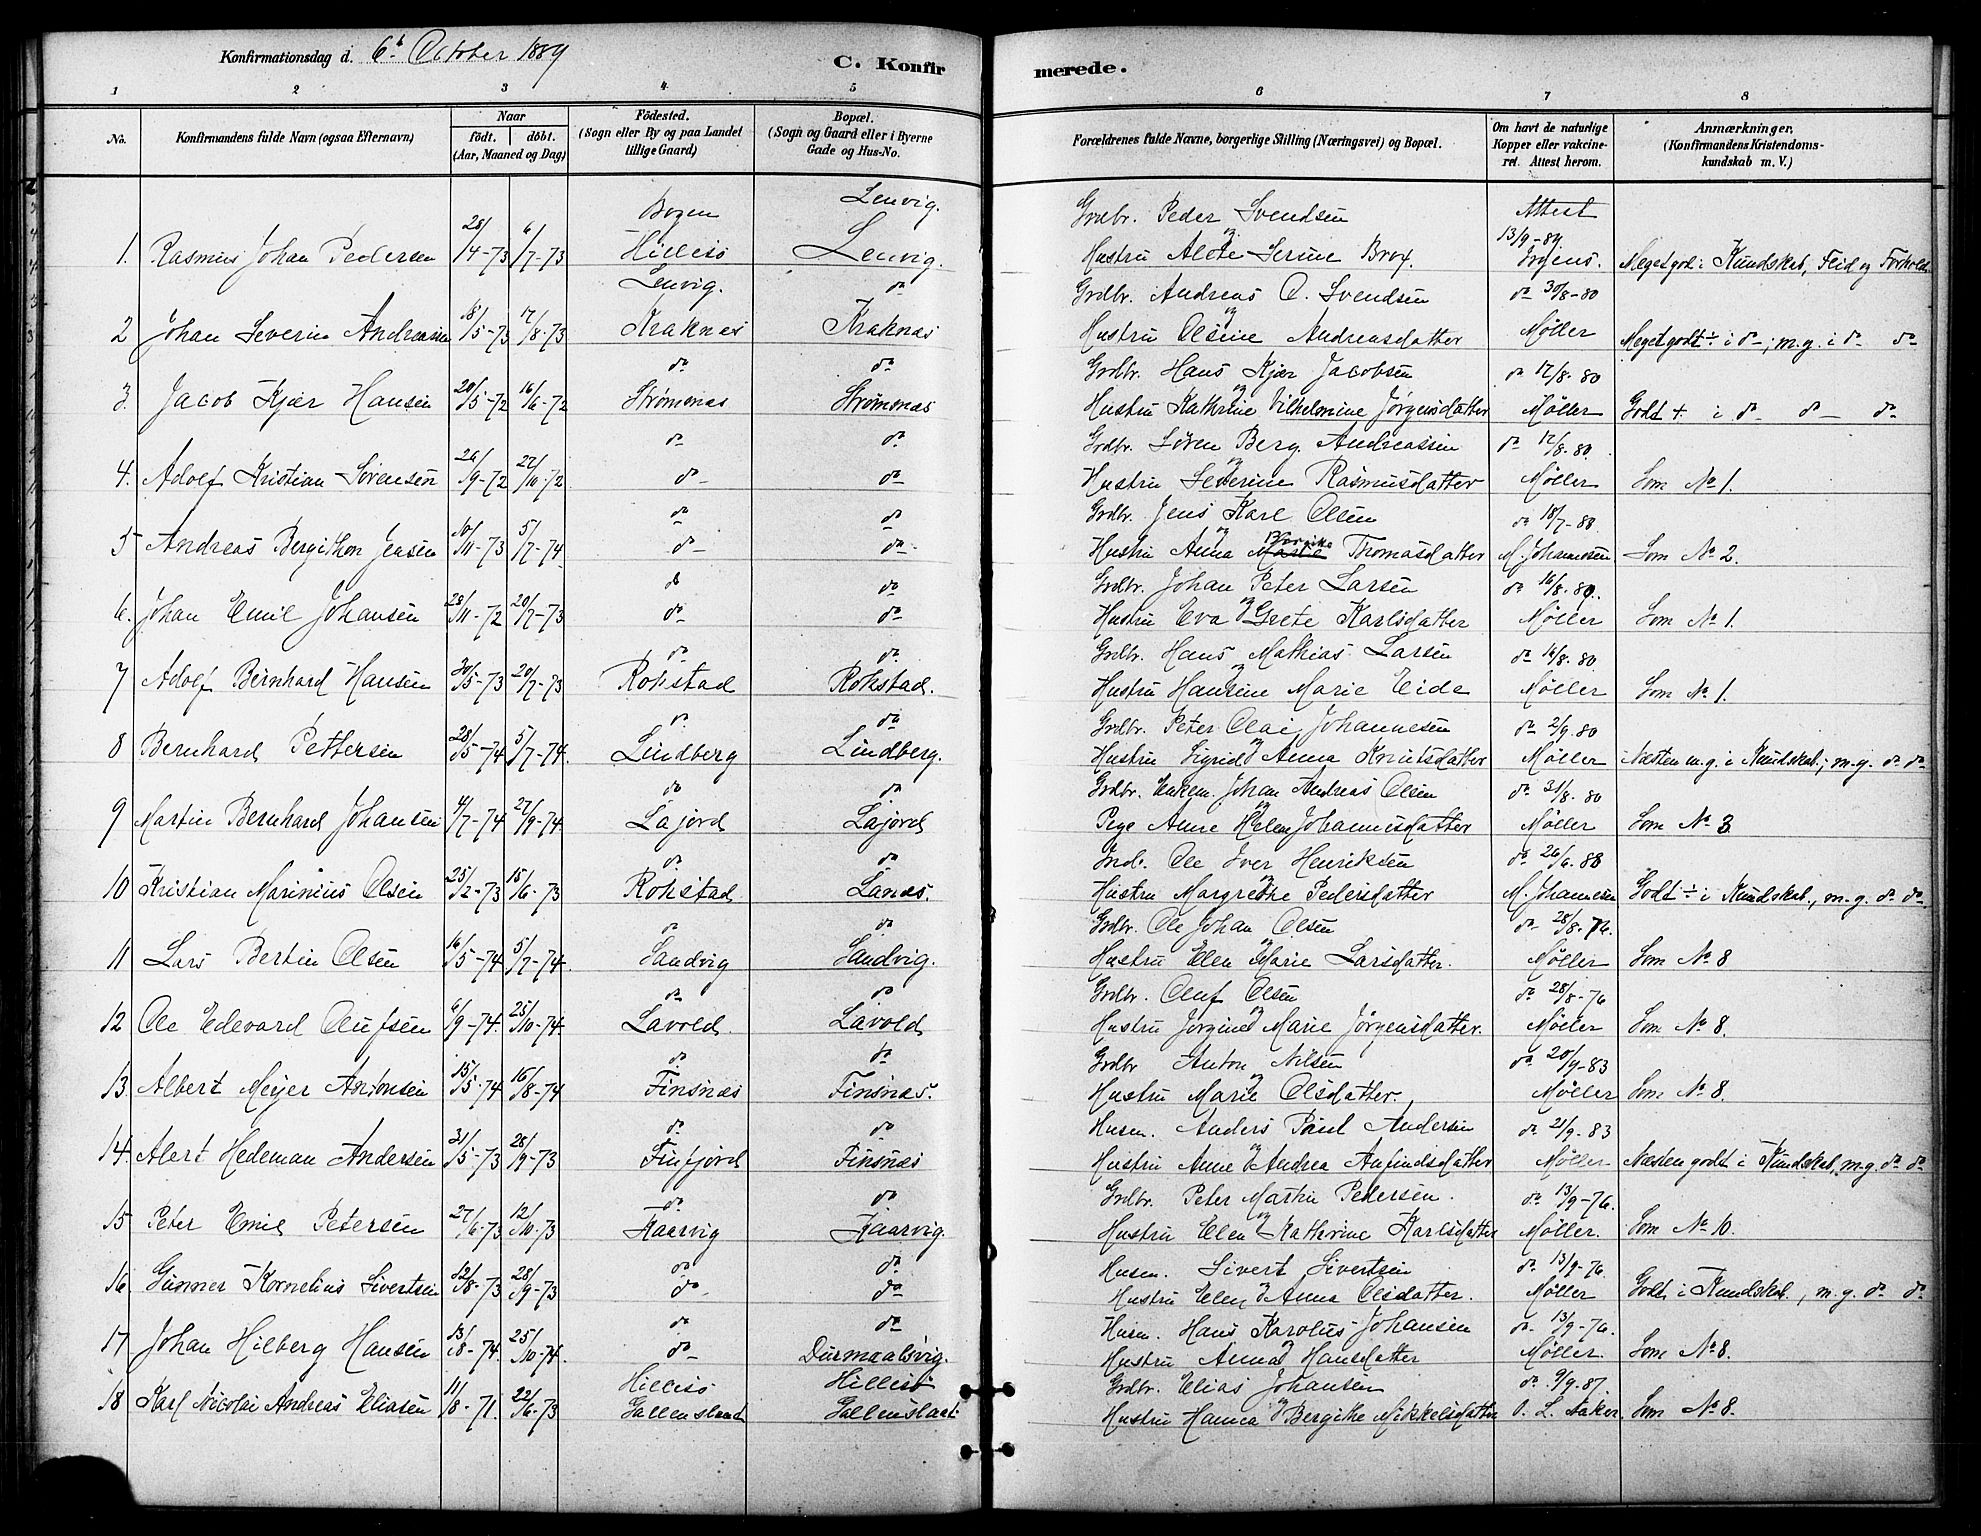 Konfirmationsdag d. 6t October 1889
C. Konfirmerede.
1 2 3 4 5 6 7 8
No. Konfirmandens fulde Navn (ogsaa Efternavn) Naar födt. döbt. (Aar, Maaned og Dag) Födested. (Sogn eller By og paa Landet tillige Gaard) Bopæl. (Sogn og Gaard eller i Byerne Gade og Hus-No. Forældrenes fulde Navne, borgerlige Stilling (Næringsvei) og Bopæl. Om havt de naturlige Kopper eller vakcineret. Attest herom. Anmærkninger. (Konfirmandens Kristendomskundskab m. V.)
Lenvig.
Bogen Grdbr. Peder Svendsen Attest
1. Rasmus Johan Pedersen 28/4-73 6/7-73 Hillesö Lenvig. og Hustru Alete Serine Brox. 13/9-89. Meget god i Kundskab, Flid og Forhold
Lenvig. do Grdbr. Andreas O. Svendsen do 30/8-80
2 Johan Severin Andreassen 18/5-73 17/8-73 Kraknæs Kraknæs og Hustru Olsine Andreasdatter Møller Meget godt ÷ i do, m.g. i do do
do do Grdbr. Hans Kjær Jacobsen do 12/8-80
3. Jacob Kjær Hansen 20/5-72 16/6-72 Strømsnæs Strømsnæs og Hustru Kathrine Vilhelmine Jørgensdatter Møller Godt + i do do do
do do Grdbr. Søren Berg Andreassen do 12/8-80.
4. Adolf Kristian Sörensen 26/9-72 27/10-72 do do og Hustru Severine Rasmusdatter Møller Som No 1.
do do Grdbr. Jens Karl Olsen do 18/7-88
5 Andreas Bergithon Jensen 10/11-73 5/7-74 do do og Hustru Anna Marie Thomasdatter M. Johannesen Som No 2.
do do Grdbr. Johan Peter Larsen do 16/8-80.
6. Johan Emil Johansen 28/11-72 20/7-73 do do og Hustru Eva Grete Karlsdatter Møller Som No 1.
do do Grdbr. Hans Mathias Larsen do 16/8-80
7 Adolf Bernhard Hansen 30/5-73 20/7-73 Rokstad Rokstad. og Hustru Hansine Marie Eide Møller Som No 1.
do do Grdbr. Peter Olai Johannesen do 2/9.80
8 Bernhard Pettersen 28/5-74 5/7-74. Lindberg Lindberg. og Hustru Sigrid Anna Knutsdatter Møller Næsten m.g. i Kundskab; m.g. do do
do do Grdbr. Enkem. Johan Andreas Olsen do 31/8-80
9 Martin Bernhard Johansen 4/7-74 27/9-74 Lajord Lajord og Pige Anne Helen Johannesdatter Møller Som No 3
do do Inds. Ole Iver Henriksen do 26/6-88
10 Kristian Marinius Olsen 25/2-73 15/6-73 Rokstad Lanæs. og Hustru Margrethe Pedersdatter M. Johannesen Godt ÷ i Kundskab, m.g. do do
do do Grdbr. Ole Johan Olsen do 28/8-76.
11 Lars Bertin Olsen 16/5-74 5/7-74. Sandvig Sandvig. og Hustru Elen Marie Larsdatter. Møller Som No 8
do do Grdbr. Oluf Olsen do 28/8-76
12 Ole Edevard Olufsen 6/9-74. 25/10-74 Lavold Lavold og Hustru Jørgine Marie Jørgensdatter. Møller Som No 8.
do do Grdbr Anton Nilsen do 20/9-83
13. Albert Meyer Antonsen 15/5-74 16/8-74 Finsnæs Finsnæs. og Hustru Marie Olsdatter. Møller Som No 8.
do do Husm. Anders Paul Andersen do 21/9-83
14. Alert Hedeman Andersen 31/5-73 28/9-73 Finfjord Finsnæs og Hustru Anne Andrea Anfindsdatter Møller Næsten godt i Kundskab, m.g. do do
do do Grdbr. Peter Martin Pedersen. do 13/9-76.
15 Peter Emil Petersen 27/6-73 12/10-73 Kaarvig Kaarvig. og Hustru Elen Katherine Karlsdatter Møller. Som No 10.
do do Husm. Sivert Sivertsen do 13/9-76.
16. Gunner Kornelius Sivertsen 12/8-73 28/9-73 do do og Hustru Elen Anna Olsdatter. Møller Godt i Kundskab, m.g. do do
do do Husm. Hans Karolus Johansen do 13/9-76.
17 Johan Hilberg Hansen 13/8-74. 25/10-74. do Durmaalsvig. og Hustru Anna Hansdatter Møller. Som No 8.
Hillesö Hillesö Grdbr. Elias Johansen do 9/9-87
18 Karl Nicolai Andreas Eliasen 11/8-71. 22/6-73 Gallenslaat Gallenslaat og Hustru Hanna Bergithe Mikkelsdatter O. L. Aaker. Som No 8.